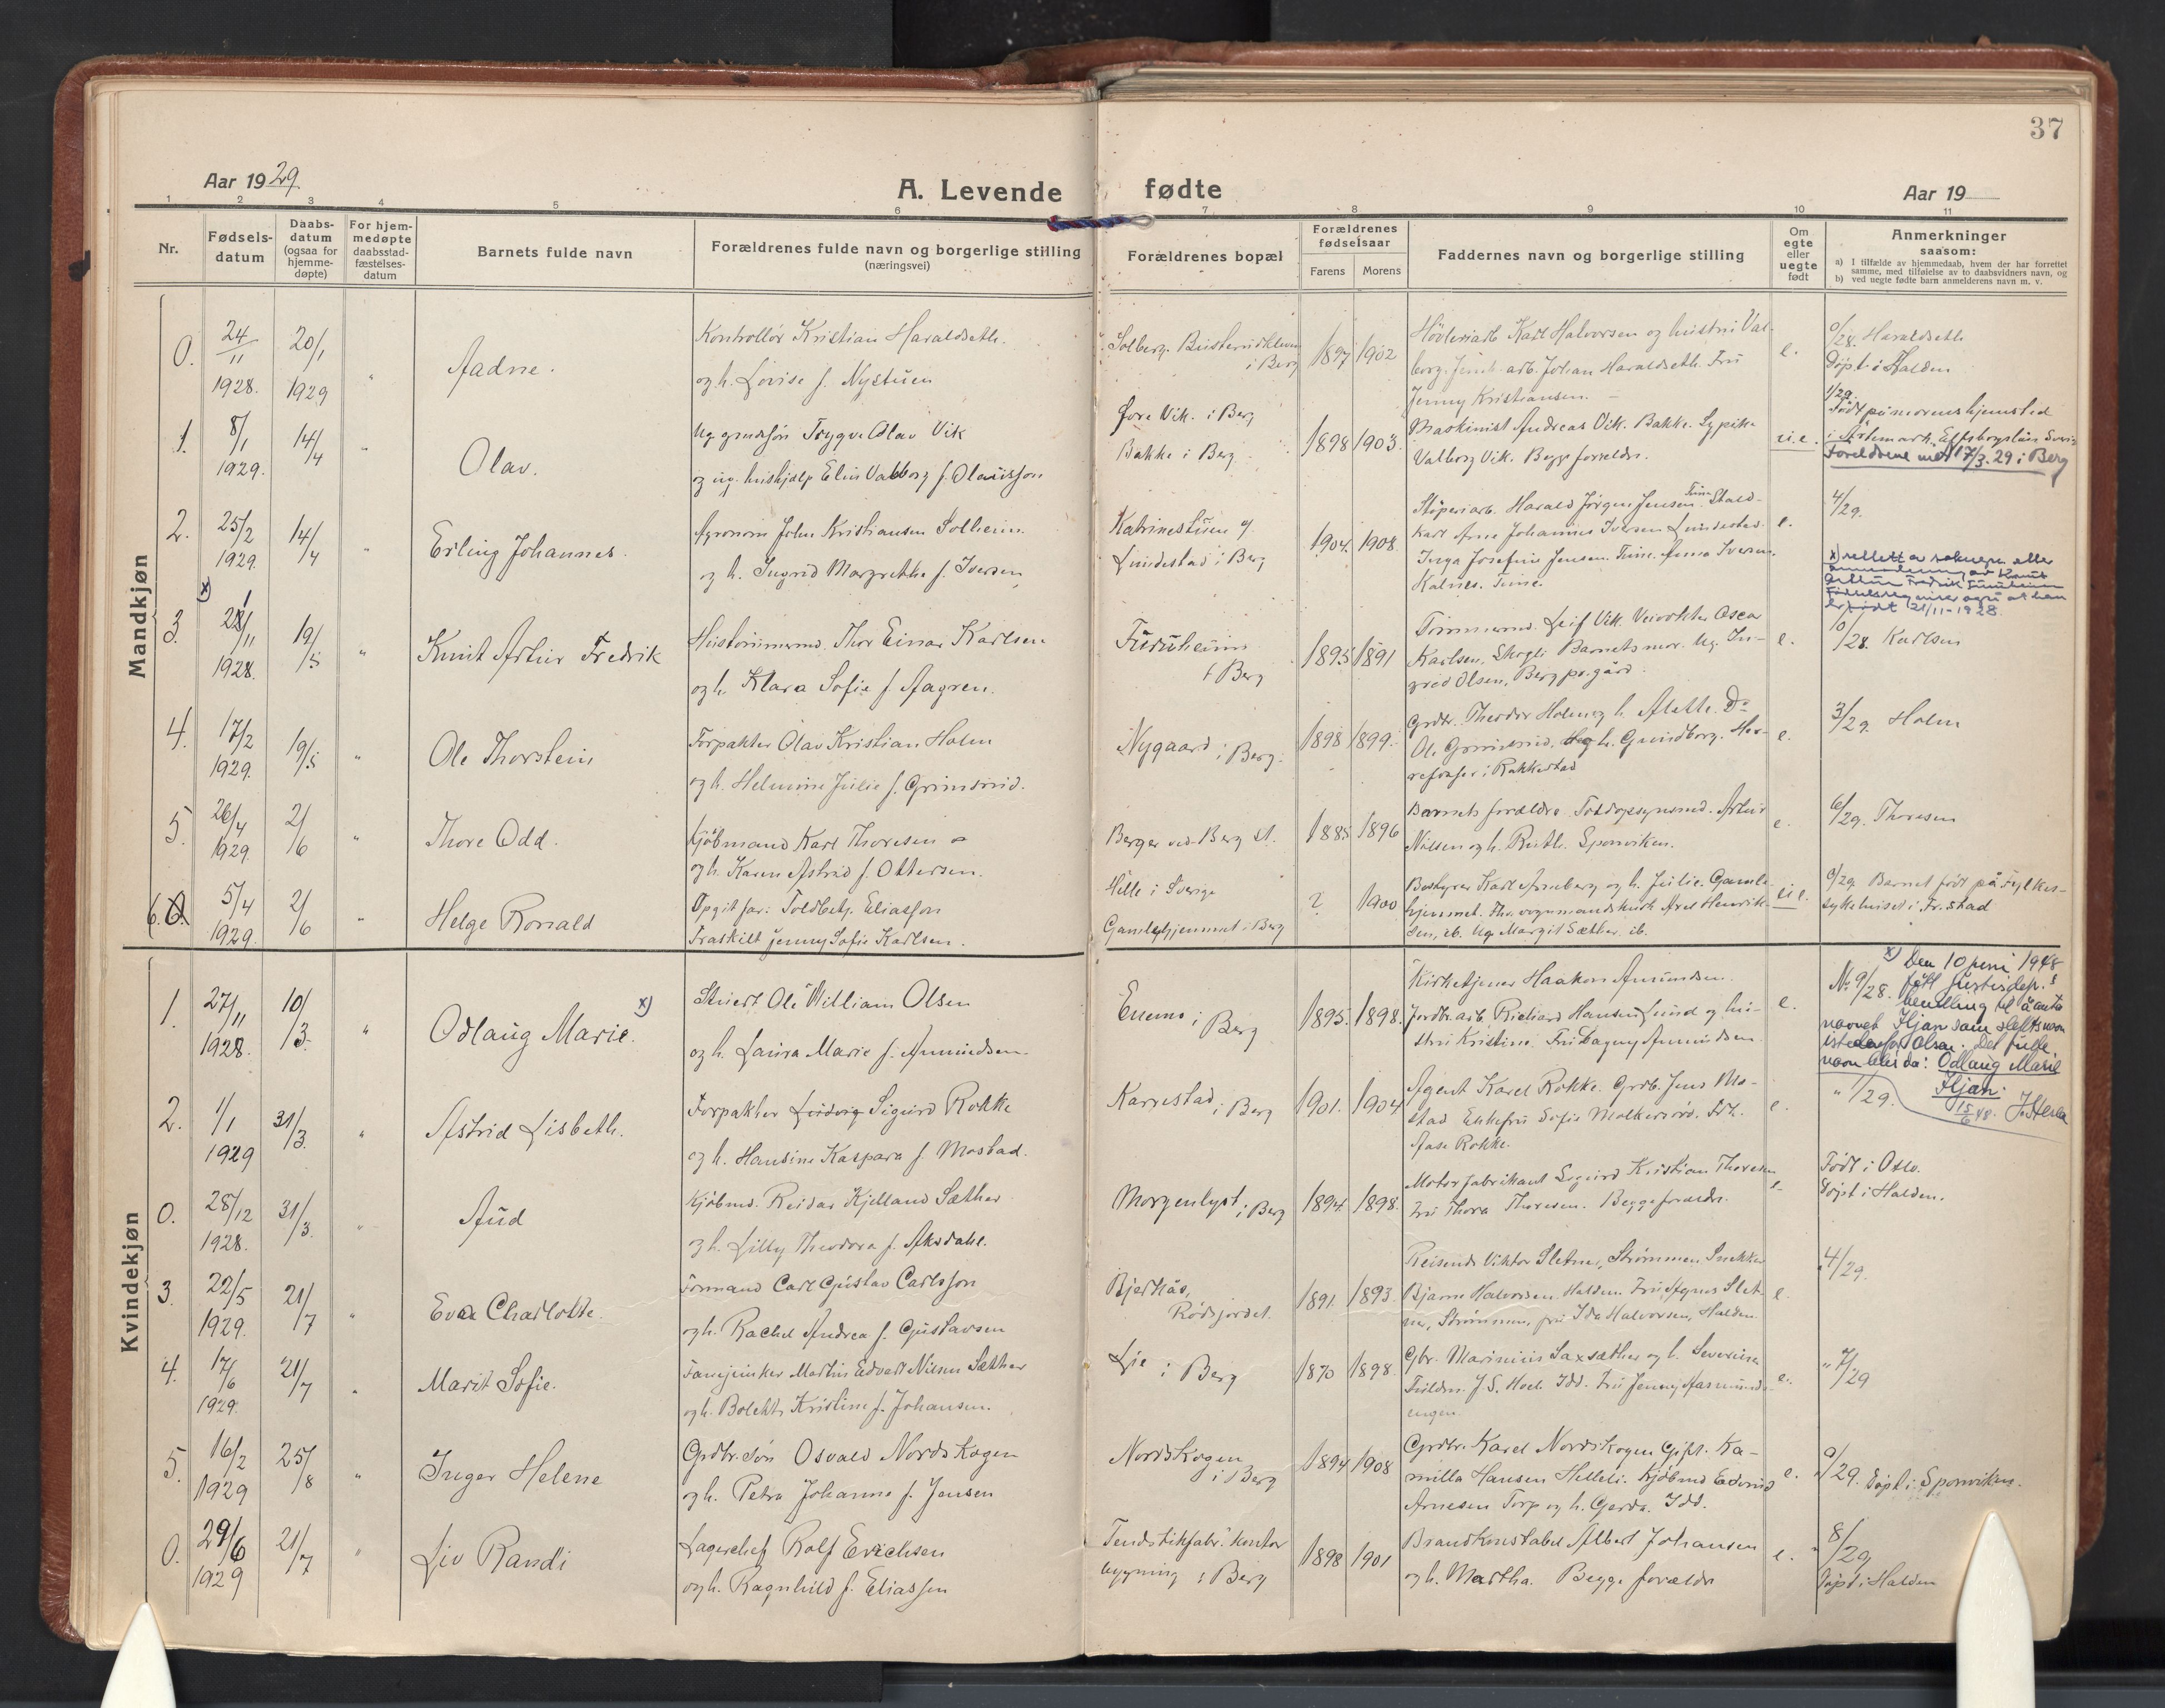 37
Aar 1929.
A. Levende fødte
Aar 19
1 2 3 4 5 6 7 8 9 10 11
Nr.
Fødsels-
datum
Daabs-
datum
(ogsaa for
hjemme-
døpte)
For hjem-
medøpte
daabsstad-
fæstelses-
datum
Barnets fulde navn
Forældrenes fulde navn og borgerlige stilling
(næringsvei)
Forældrenes bopæl
Forældrenes
fødselsaar
Farens Morens
Faddernes navn og borgerlige stilling
Om
egte
eller
uegte
født
Anmerkninger
saasom:
a) I tilfælde av hjemmedaab, hvem der har forrettet
samme, med tilføielse av to daabsvidners navn, og
b) ved uegte fødte barn anmelderens navn m. v.
Mandkjøn
0. 24/11 1928. 20/1 1929 " Aadne.
Kontrollør Kristian Haraldseth.
og h. Lovise f. Nystuen
Solberg.
i Berg
1897 1902
Høvleriarb. Karl Halvorsen og hustru Val-
borg. arb. Johan Haraldseth. Fru
Jenny Kristiansen.
e.
0/28. Haraldseth
Døpt i Halden
1. 8/1 1929. 14/4 " Olav.
Ug. grndsøn Trygve Olav Vik
og ug. hushjælp Elin Valborg f. Olausson
Øvre Vik. i Berg
Bakke i Berg
1898 1903.
Maskinist Andreas Vik. Bakke.
Valborg Vik. Begge forreldre.
u.e.
1/29.
Født på morens hjemsted
i Årtemark,
Foreldrene 17/3. 29 i Berg
2. 25/2 1929. 14/4 " Erling Johannes.
Agronom John Kristiansen Solheim.
og h. Ingrid Margrethe f. Iversen
Katrinestuen
Lundestad i Berg
1904. 1908.
Støperiarb. Harald Jørgen Jensen Tune.
Karl Arne Johannes Iversen Lundestad.
Inga Josefine Jensen. Tune. Anna Iversen.
Kalnes. Tune
e.
4/29.
x) rettet av soknepr. etter
anmodning av Knut
Artur Fredrik Furuheim
er født 21/11-1928.
x)
3. 21/11 1928. 19/5 " Knut Artur Fredrik
Hustømmermd. Thor Einar Karlsen
og h. Klara Sofie f. Aagren.
Furuheim
i Berg
1895 1891
Tømmermd. Leif Vik. Veivokter Oscar
Karlsen, Skogli. Barnets mor. Ug. In-
grid Olsen, Berg pr.gård.
e.
10/28. Karlsen
4. 17/2 1929. 19/5 " Ole Thorstein
Forpakter Olav Kristian Holm
og h. Helmine Julie f. Grimsrud.
Nygaard i Berg.
1898 1899.
Grdbr. Theodor Holm og h. Alethe. Do
Ol. Grimsrud. og h. Gundborg.
i Rakkestad
e.
3/29. Holm
5. 26/4 1929. 2/6 " Thore Odd.
Kjøbmand Karl Thoresen
og h. Karen Astrid f. Ottersen.
Berger ved Berg st.
1885. 1896
Barnets forældre. Toldopsynsmd. Artur
Nilsen og h. Ruth. Sponviken.
e.
6/29. Thoresen
6. 5/4 1929. 2/6 " Helge Ronald
Opgit far: Toldbetj. Eliasson
Fraskilt Jenny Sofie Karlsen.
Hille i Sverige
Gamlehjemmet i Berg
? 1900
Bestyrer Karl Arneberg og h. Julie. Gamle-
hjemmet. Fhv. vognmandskusk Axel Henrik-
sen, ib. Ug. Margit Sæther. ib.
u e.
Barnet født på Fylkes-
sykehuset i Fr.stad
Kvindekjøn
1. 27/11 1928. 10/3 " Odlaug Marie. x)
Stuert Ole William Olsen
og h. Laura Marie f. Amundsen.
Enemo i Berg
1895. 1898.
Kirketjener Haakon Amundsen.
Jordbr.arb. Richard Hansen Lund og hu-
stru Kristine. Fru Dagny Amundsen
e.
No 9/28.
x) Den 10 juni 1948
fått justisdep.s
bevilling til å anta
navnet Hjan som slektsnavn
istedenfor Olsen. Det fulle
navn blir da: Odlaug Marie
Hjan.
15/6 48.
2. 1/1 1929 31/3. " Astrid Lisbeth.
Forpakter Ludvig Sigurd Rokke
og h. Hansine Kaspara f. Mostad.
Karrestad i Berg
1901. 1904
Agent Karel Rokke. Grdb. Jens Mo-
stad. Enkefru Sofie
Aase Rokke.
e.
" 1/29.
0. 28/12 1928. 31/3. " Aud
Kjøbmd. Reidar Kjelland Sæther
og h. Lilly Theodora f. Aksdahl.
Morgenlyst i Berg
1894. 1898.
Motorfabrikant Sigurd Kristian Thoresen
Fru Thora Thoresen. Begge forældre.
e
Født i Oslo.
Døpt i Halden.
3. 22/5 1929. 21/7 " Eva Charlotte.
Formand Carl Gustav Carlsson
og h. Rachel Andrea f. Gustavsen
Bjerkås,
Rødsjordet.
1891. 1893
Reisende Viktor Sletner, Strømmen. Snekker
Bjarne Halvorsen. Halden. Fru Agnes Slet-
ner, Strømmen, fru Ida Halvorsen, Halden.
e.
4/29.
4. 17/6 1929. 21/7 " Marit Sofie.
Fanejunker Martin Edvart Nilsen Sæther
og h. Bolette Kristine f. Johansen.
Lie i Berg
1870 1898.
Gbr. Marinius Saxsæther og h. Severine
Idd. Fru Jenny Aasmunds-
engen.
e.
" 7/29
5. 16/2 1929 25/8 " Inger Helene
Grdbr.søn Osvald Nordskogen
og h. Petra Johanne f. Jensen
Nordskogen
i Berg
1894 1908
Grdbr. Karel Nordskogen. Gift. Ka-
milla Hansen Helleli. Kjøbmd Edvind
Arnesen Torp og h. Gerda. Idd.
e.
9/29. Døpt i Sponviken.
0. 29/6 1929 21/7 " Liv Randi
Lagerchef Rolf Erichsen
og h. Ragnhild f. Eliassen
Tendstikfabr. kontor
bygning i Berg
1898 1901
Brandkonstabel Albert Johansen
og h. Martha. Begge forældre
e.
8/29
Døpt i Halden